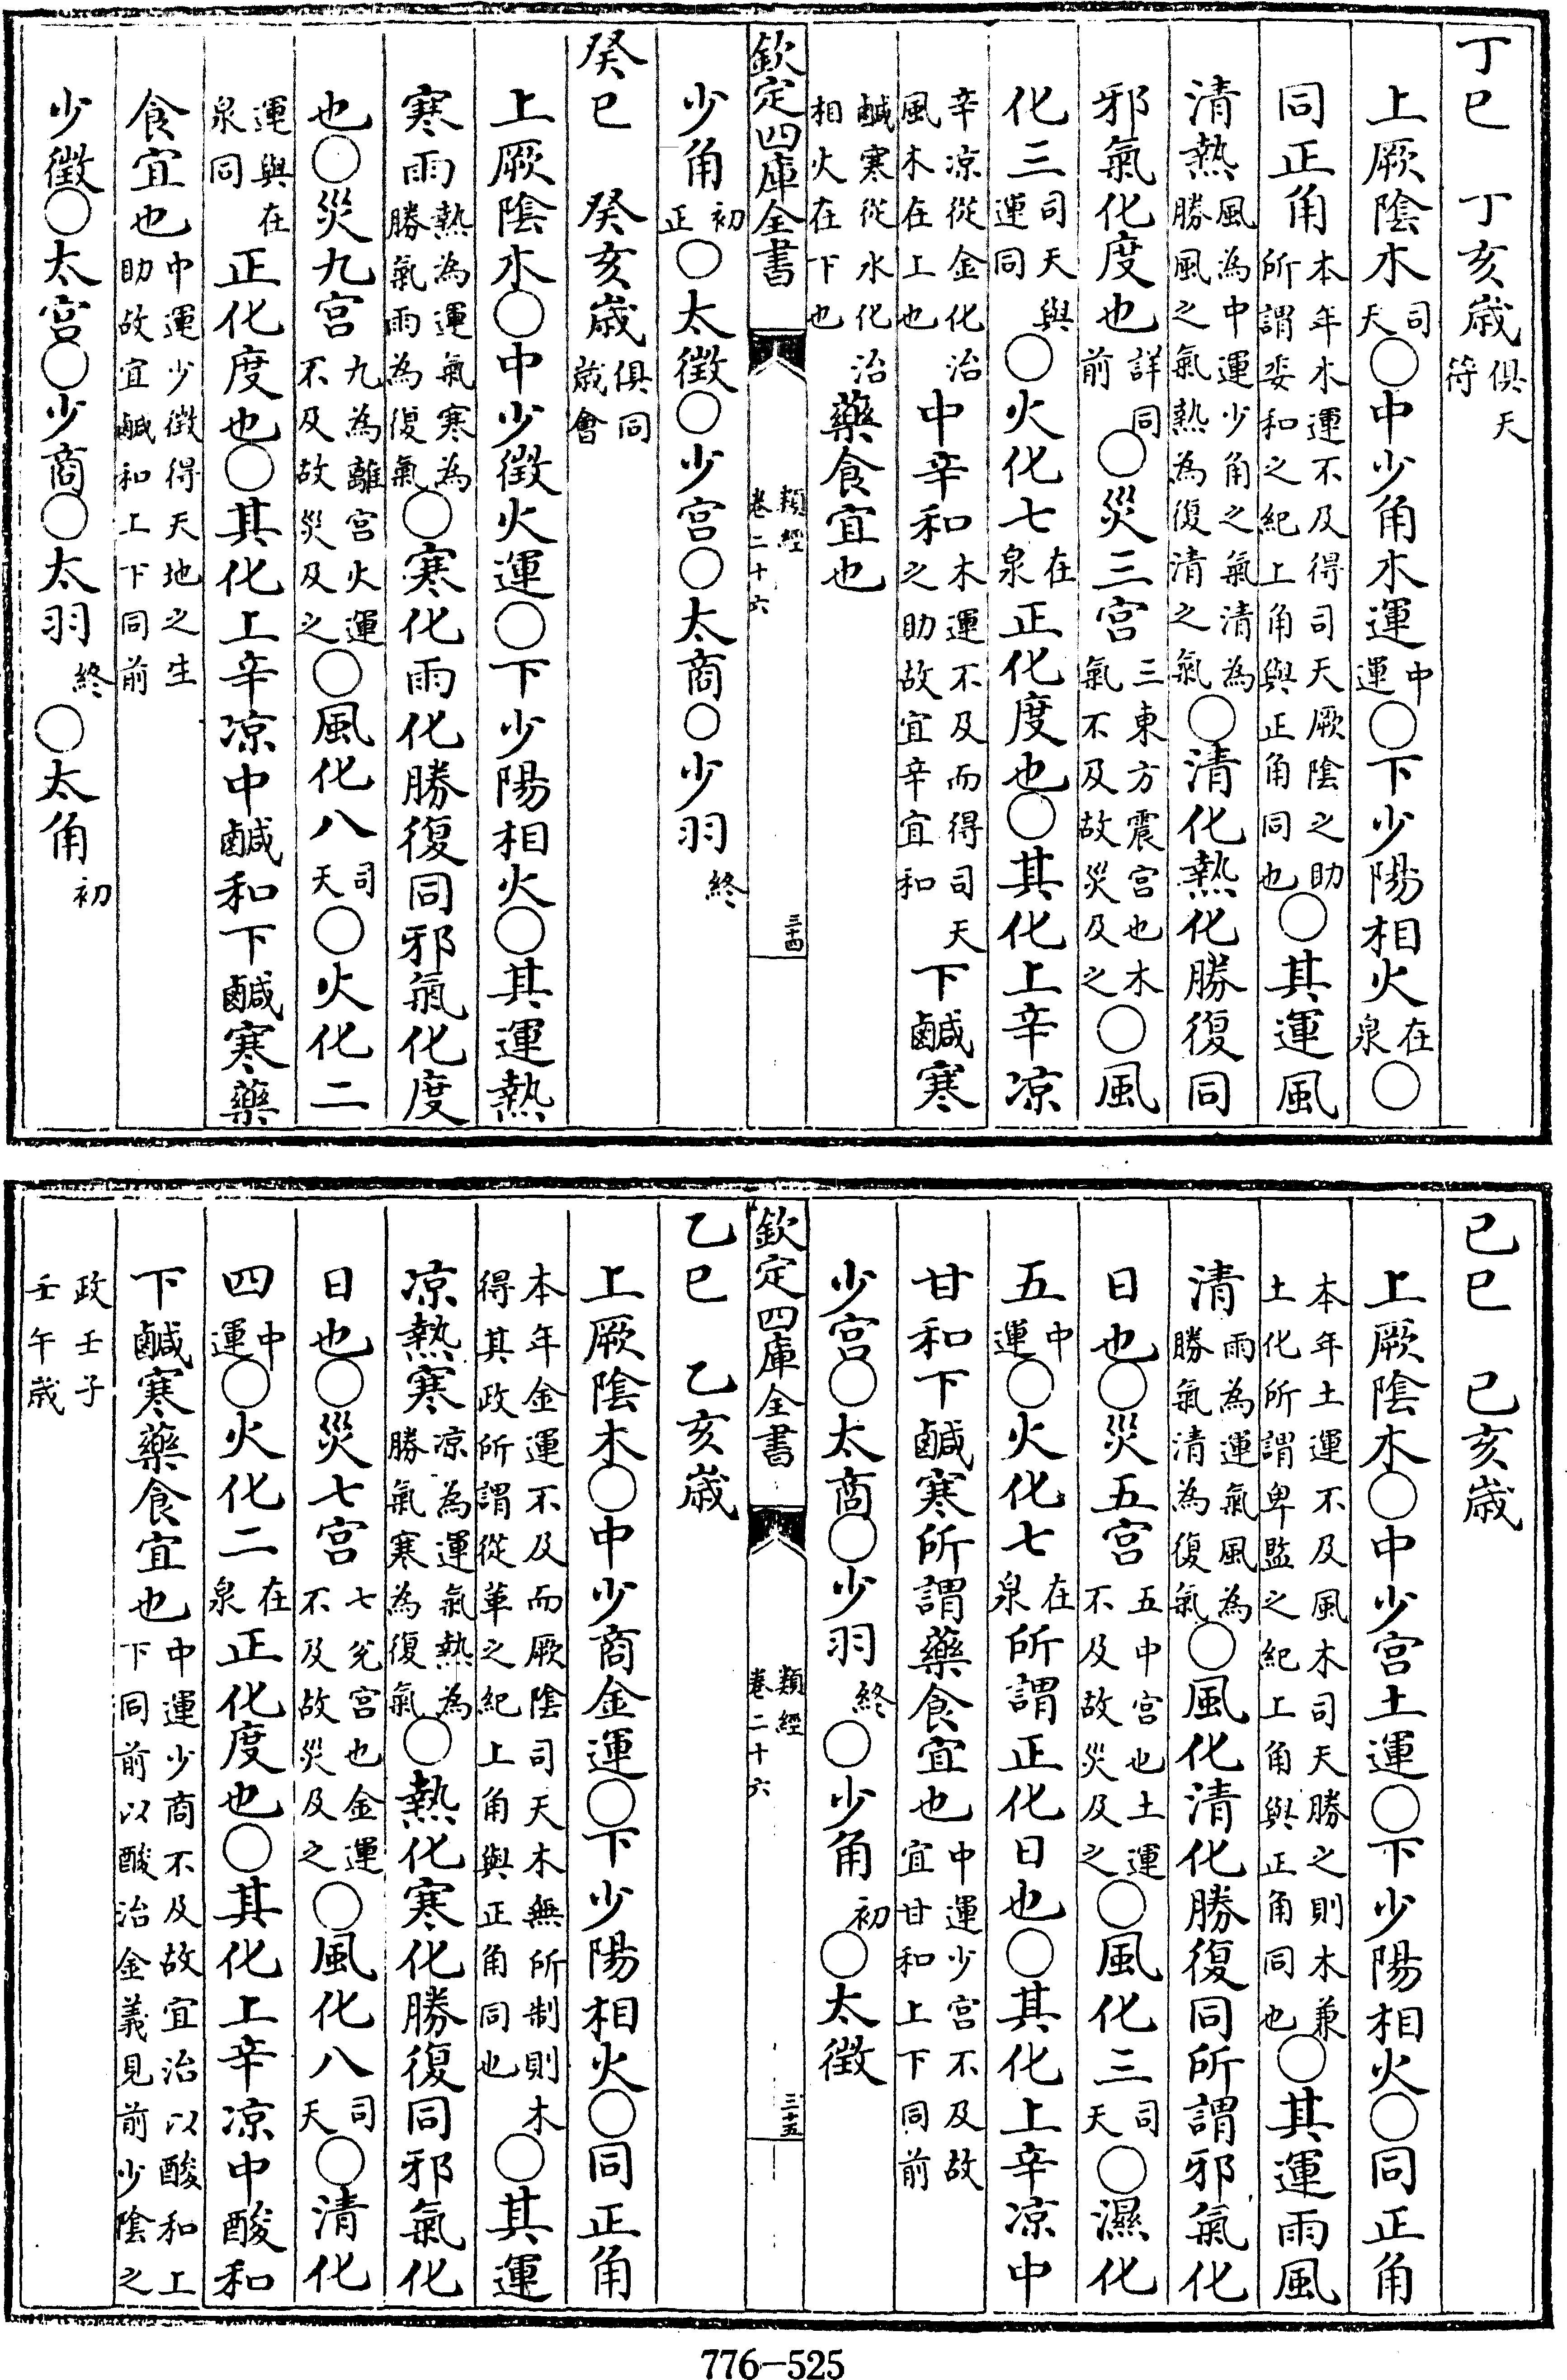 丁巳　丁亥歲俱天符
上厥隂木司天〇中少角木運中運〇下少陽相火在泉〇
同正角本年木運不及得司天厥隂之助所謂委和之紀上角與正角同也〇其運風
清熱風為中運少角之氣清為勝風之氣熱為復清之氣〇清化熱化勝復同
邪氣化度也詳同前〇災三宮三東方震宮也木氣不及故災及之〇風
化三司天與運同〇火化七在泉正化度也〇其化上辛凉
辛凉從金化治風木在上也中辛和木運不及而得司天之助故宜辛宜和下鹹寒
鹹寒從水化治相火在下也藥食宜也
欽定四庫全書　類經卷二十六　三十四
少角初正〇太徵〇少宮〇太商〇少羽終
癸巳　癸亥歲俱同歲會
上厥隂木〇中少徵火運〇下少陽相火〇其運熱
寒雨熱為運氣寒為勝氣雨為復氣〇寒化雨化勝復同邪氣化度
也〇災九宮九為離宮火運不及故災及之〇風化八司天〇火化二
運與在泉同正化度也〇其化上辛凉中鹹和下鹹寒藥
食宜也中運少徵得天地之生助故宜鹹和上下同前
少徵〇太宮〇少商〇太羽終〇太角初
己巳　己亥歲
上厥隂木〇中少宮土運〇下少陽相火〇同正角
本年土運不及風木司天勝之則木兼土化所謂卑監之紀上角與正角同也〇其運雨風
清雨為運氣風為勝氣清為復氣〇風化清化勝復同所謂邪氣化
日也〇災五宮五中宮也土運不及故災及之〇風化三司天〇濕化
五中運〇火化七在泉所謂正化日也〇其化上辛凉中
甘和下鹹寒所謂藥食宜也中運少宮不及故宜甘和上下同前
少宮〇太商〇少羽終〇少角初〇太徵
欽定四庫全書　類經卷二十六　三十五
乙巳　乙亥歲
上厥隂木〇中少商金運〇下少陽相火〇同正角
本年金運不及而厥隂司天木無所制則木得其政所謂從革之紀上角與正角同也〇其運
凉熱寒凉為運氣熱為勝氣寒為復氣〇熱化寒化勝復同邪氣化
日也〇災七宮七兌宮也金運不及故災及之〇風化八司天〇清化
四中運〇火化二在泉正化度也〇其化上辛凉中酸和
下鹹寒藥食宜也中運少商不及故宜治以酸和上下同前以酸治金義見前少隂之
政壬子壬午歲
776-525